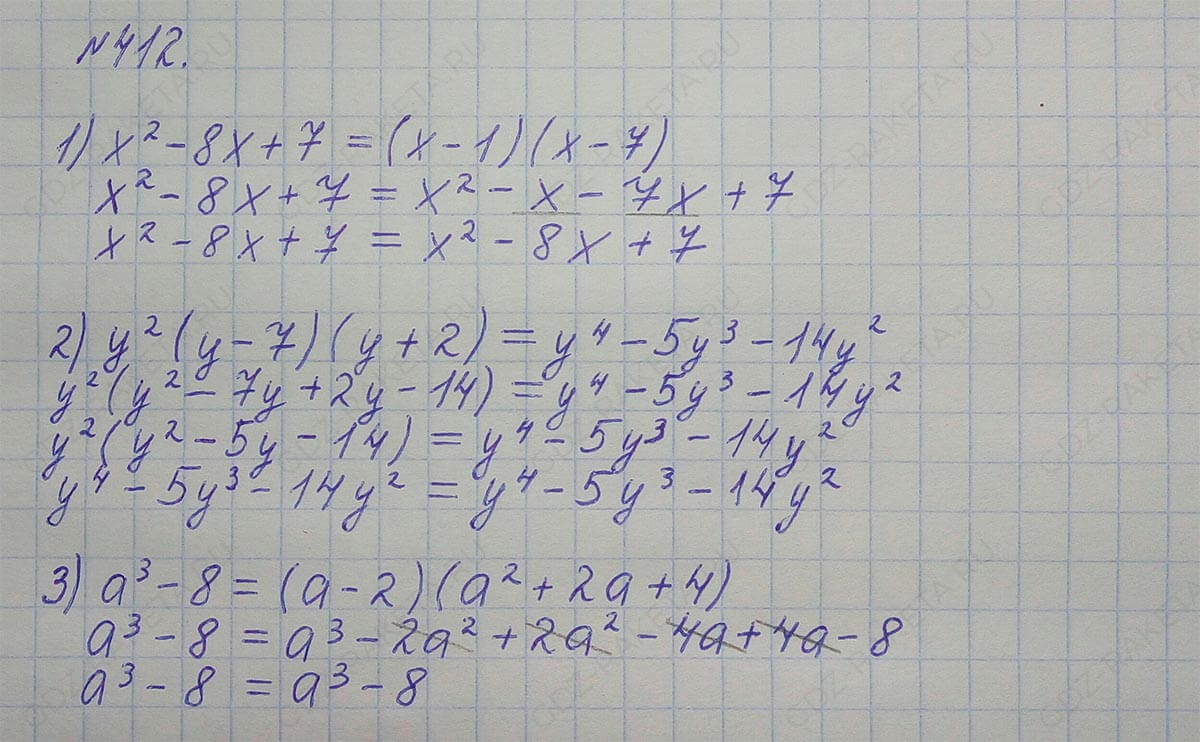 №412.
1) x² - 8x + 7 = (x - 1)(x - 7)
x² - 8x + 7 = x² - x - 7x + 7
x² - 8x + 7 = x² - 8x + 7
2) y²(y - 7)(y + 2) = y⁴ - 5y³ - 14y²
y²(y² - 7y + 2y - 14) = y⁴ - 5y³ - 14y²
y²(y² - 5y - 14) = y⁴ - 5y³ - 14y²
y⁴ - 5y³ - 14y² = y⁴ - 5y³ - 14y²
3) a³ - 8 = (a - 2)(a² + 2a + 4)
a³ - 8 = a³ - 2a² + 2a² - 4a + 4a - 8
a³ - 8 = a³ - 8
GDZ-RAKETA.RU